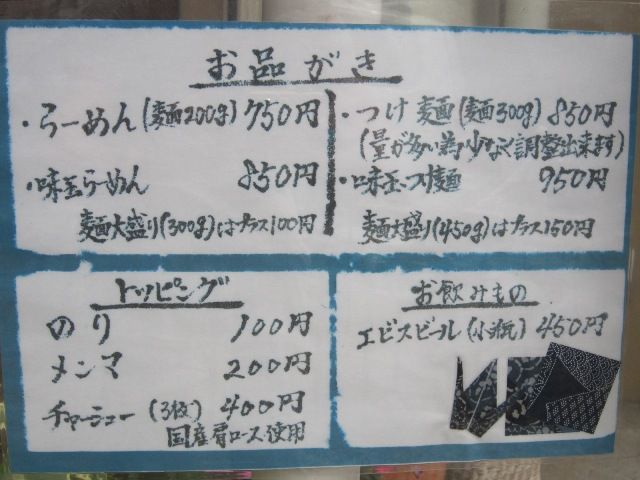 お品がき
・らーめん(麺200g) 750円
・味玉らーめん 850円
麺大盛り(300g)はプラス100円
・つけ麺(麺300g) 850円
(量が多い為少なく調整出来ます)
・味玉つけ麺 950円
麺大盛り(450g)はプラス150円
トッピング
のり 100円
メンマ 200円
チャーシュー(3枚) 400円
国産肩ロース使用
お飲みもの
エビスビール(小瓶) 450円